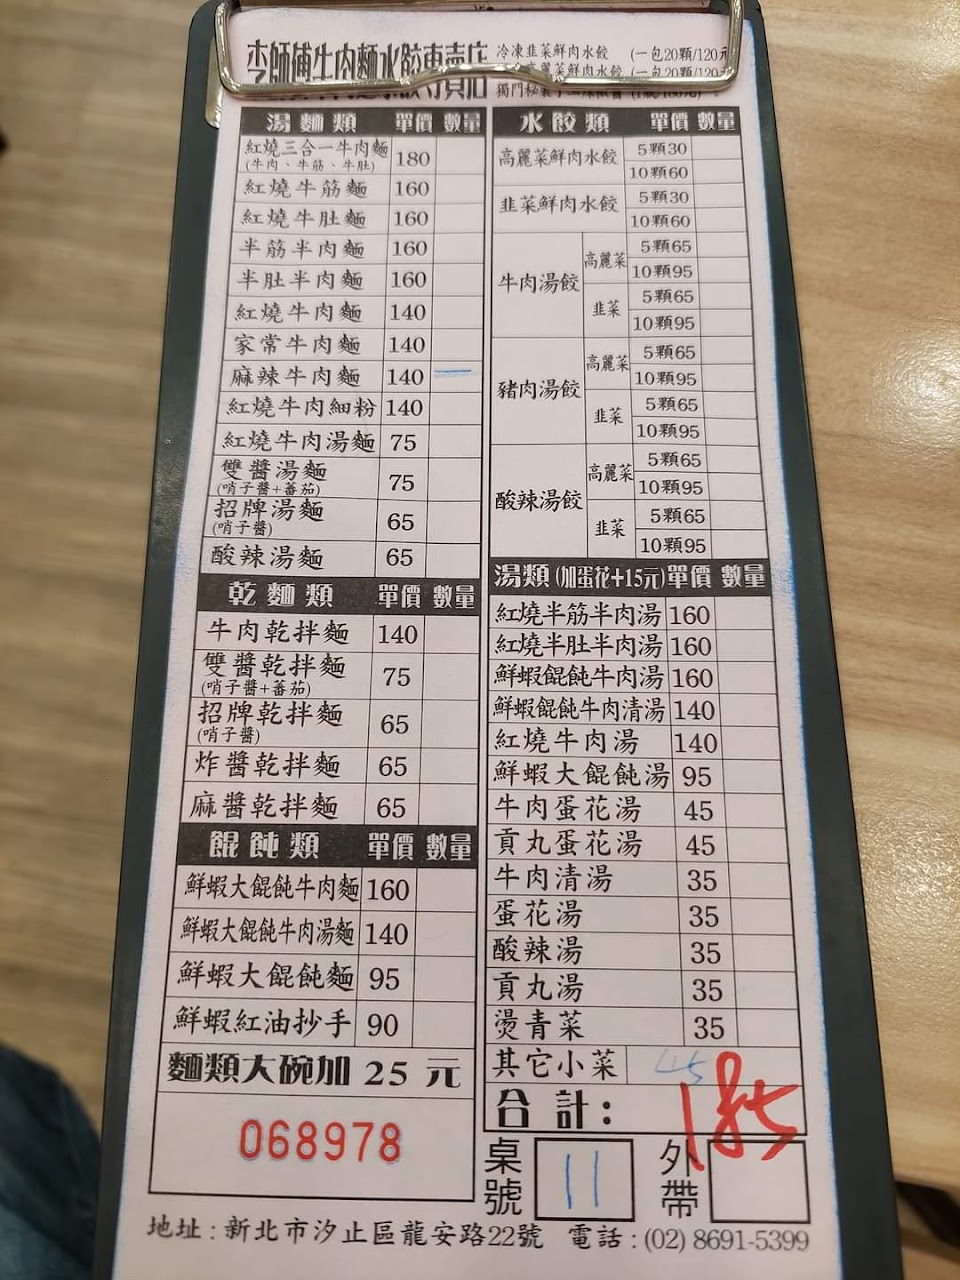 李師傅牛肉麵水餃專賣店
冷凍韭菜鮮肉水餃 (一包20顆/120元
高麗菜鮮肉水餃 (一包20顆/120元
湯麵類 單價 數量
紅燒三合一牛肉麵 180
(牛肉、牛筋、牛肚)
紅燒牛筋麵 160
紅燒牛肚麵 160
半筋半肉麵 160
半肚半肉麵 160
紅燒牛肉麵 140
家常牛肉麵 140
麻辣牛肉麵 140 一
紅燒牛肉細粉 140
紅燒牛肉湯麵 75
雙醬湯麵 75
(哨子醬+蕃茄)
招牌湯麵 65
(哨子醬)
酸辣湯麵 65
乾麵類 單價 數量
牛肉乾拌麵 140
雙醬乾拌麵 75
(哨子醬+蕃茄)
招牌乾拌麵 65
(哨子醬)
炸醬乾拌麵 65
麻醬乾拌麵 65
餛飩類 單價 數量
鮮蝦大餛飩牛肉麵 160
鮮蝦大餛飩牛肉湯麵 140
鮮蝦大餛飩麵 95
鮮蝦紅油抄手 90
麵類大碗加 25 元
068978
水餃類 單價 數量
高麗菜鮮肉水餃 5顆30
10顆60
韭菜鮮肉水餃 5顆30
10顆60
牛肉湯餃 高麗菜 5顆65
10顆95
韭菜 5顆65
10顆95
豬肉湯餃 高麗菜 5顆65
10顆95
韭菜 5顆65
10顆95
酸辣湯餃 高麗菜 5顆65
10顆95
韭菜 5顆65
10顆95
湯類(加蛋花+15元) 單價 數量
紅燒半筋半肉湯 160
紅燒半肚半肉湯 160
鮮蝦餛飩牛肉湯 160
鮮蝦餛飩牛肉清湯 140
紅燒牛肉湯 140
鮮蝦大餛飩湯 95
牛肉蛋花湯 45
貢丸蛋花湯 45
牛肉清湯 35
蛋花湯 35
酸辣湯 35
貢丸湯 35
燙青菜 35
其它小菜 45
合計: 185
桌號 11 外帶
地址:新北市汐止區龍安路22號 電話:(02) 8691-5399